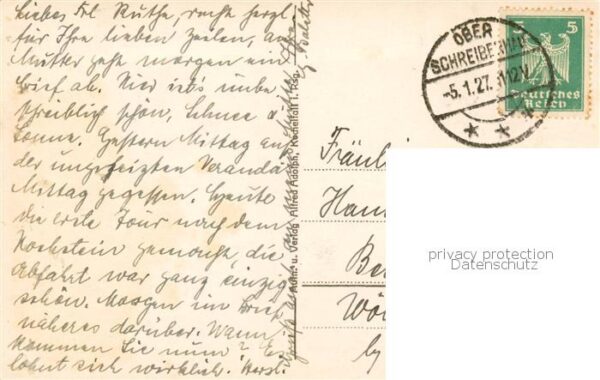 Liebes Frl. Ruthe, recht herzl.
für Ihre lieben Zeilen, an
Mutter geht morgen ein
Brief ab. Hier ist's unbe-
schreiblich schön, Schnee u.
Sonne. Gestern Mittag auf
der ungeheizten Veranda
Mittag gegessen. Heute
die erste Tour nach dem
Hochstein gemacht, die
Abfahrt war ganz einzig
schön. Morgen im Brief
näheres darüber. Wann
kommen Sie nun? Es
lohnt sich wirklich. Herzl.
Phot. u. Verlag Alfred Adolph, Rochelfall i. Rsg.
OBER
SCHREIBERHAU
-5.1.27.
12V
5 5
Deutsches
Reich
Fräulei
Han
Be
Wö
by
privacy protection
Datenschutz